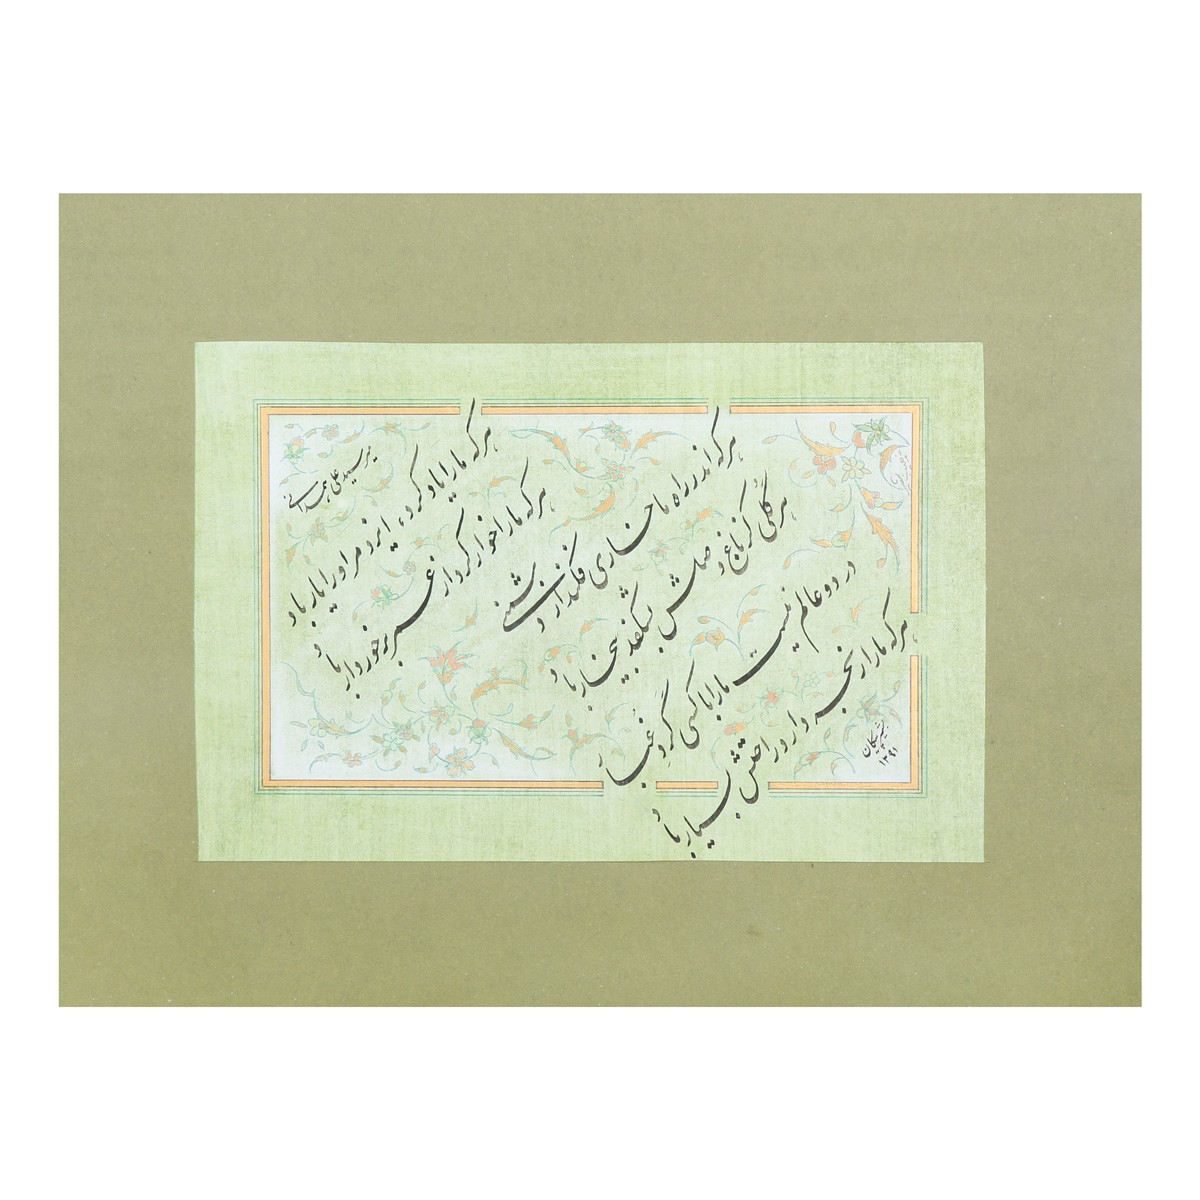 هر که ما را یاد کرد، ایزد مر او را یار باد
هر که ما را خوار کرد از عمر برخوردار باد
هر که اندر راه ما خاری فکند از دشمنی
هر گُلی کز باغ وصلش بشکفد بیخار باد
در دو عالم نیست ما را با کسی گرد و غُبار
هر که ما را رنجه دارد راحتش بسیار باد
میر سید علی همدانی
۱۳۹۱